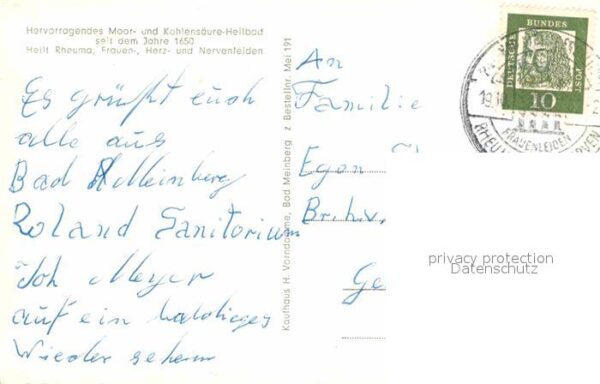 Hervorragendes Moor- und Kohlensäure-Heilbad
seit dem Jahre 1650
Heilt Rheuma, Frauen-, Herz- und Nervenleiden
Es grüßt euch
alle aus
Bad Meinberg
Roland Sanitorium
Joh Meyer
auf ein baldieges
Wieder sehen
Kaufhaus H. Vorndamme, Bad Meinberg z Bestellnr. Mei 191
An
Familie
Egon
Br.hv.
Ge
DEUTSCHE
BUNDES
POST
10
19.10
FRAUENLEIDEN
RHEU
privacy protection
Datenschutz